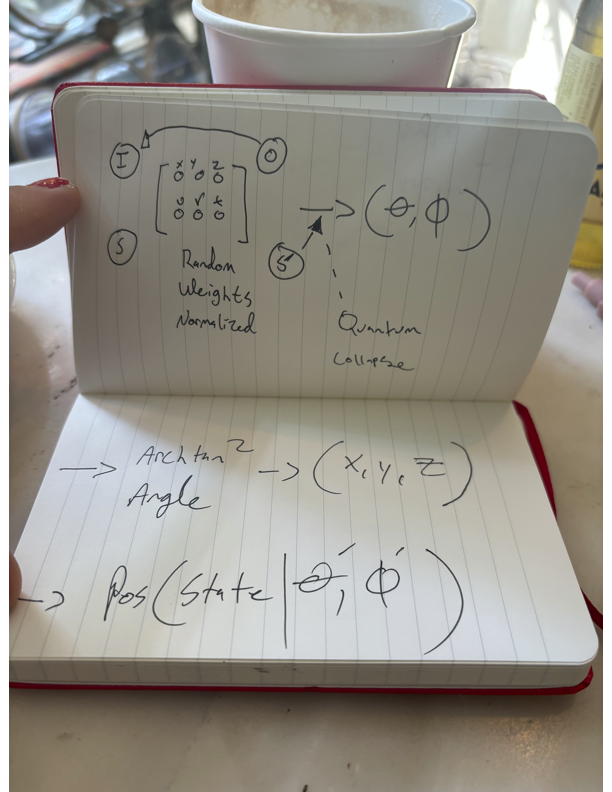 I
O
x y z
0 0 0
u v t
0 0 0
S
Random
Weights
Normalized
S
—> (θ, ϕ)
Quantum
Collapse
—> Archtan2
Angle
—> (x, y, z)
—> Pos(State|θ′, ϕ′)